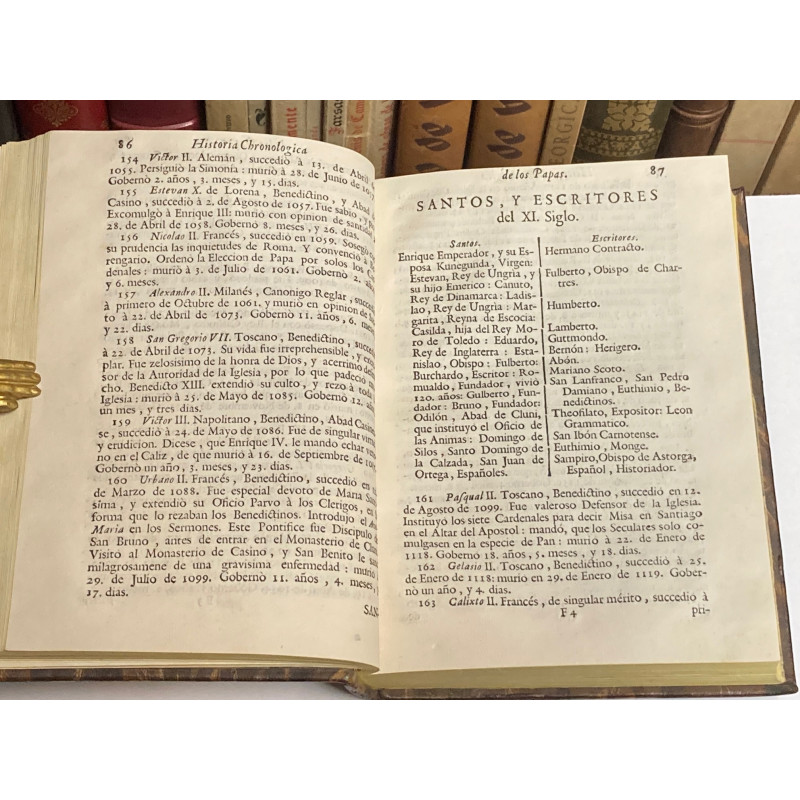 FARSA
ORGIC
86 Historia Chronologica
154 Victor II. Alemán, succedió à 13. de Abril de
1055. Persiguió la Simonía: murió à 28. de Junio de
Gobernò 2. años, 3. meses, y 15. dias.
155 Estevan X. de Lorena, Benedictino, y Abad
Casino, succedió à 2. de Agosto de 1057. Fue sabio, y
Excomulgò à Enrique III: murió con opinion de
28. de Abril de 1058. Gobernò 8. meses, y 26. dias.
156 Nicolao II. Francés, succedió en 1059.
su prudencia las inquietudes de Roma. Y convenció à
rengario. Ordenó la Eleccion de Papa por solos los
denales: murió à 3. de Julio de 1061. Gobernò 2.
y 6. meses.
157 Alexandro II. Milanés, Canonigo Reglar,
à primero de Octubre de 1061. y murió en opinion de
to à 22. de Abril de 1073. Gobernò 11. años, 6.
y 22. dias.
158 San Gregorio VII. Toscano, Benedictino,
à 22. de Abril de 1073. Su vida fue irreprehensible, y
plar. Fue zelosisimo de la honra de Dios, y acerrimo
sor de la Autoridad de la Iglesia, por lo que padeciò
cho. Benedicto XIII. extendió su culto, y rezo à toda
Iglesia: murió à 25. de Mayo de 1085. Gobernò 12.
un mes, y tres dias.
159 Victor III. Napolitano, Benedictino, Abad
se, succedió à 24. de Mayo de 1086. Fue de singular
y erudicion. Dicese, que Enrique IV. le mandó echar
no en el Caliz, de que murió à 16. de Septiembre de
Gobernò un año, 3. meses, y 23. dias.
160 Urbano II. Francés, Benedictino, succedió en
de Marzo de 1088. Fue especial devoto de Maria
sima, y extendió su Oficio Parvo à los Clerigos, en
forma que lo rezaban los Benedictinos. Introdujo el
Maria en los Sermones. Este Pontifice fue Discipulo
San Bruno, antes de entrar en el Monasterio de
Visitó al Monasterio de Casino, y San Benito le
milagrosamene de una gravisima enfermedad: murió
29. de Julio de 1099. Gobernò 11. años, 4. meses,
17. dias.
SAN-
de los Papas. 87
SANTOS, Y ESCRITORES
del XI. Siglo.
Santos.
Enrique Emperador, y su Es-
posa Kunegunda, Virgen:
Estevan, Rey de Ungria, y
su hijo Emerico: Canuto,
Rey de Dinamarca: Ladis-
lao, Rey de Ungria: Mar-
garita, Reyna de Escocia:
Casilda, hija del Rey Mo-
ro de Toledo: Eduardo,
Rey de Inglaterra: Esta-
nislao, Obispo: Fulberto:
Burchardo, Escritor: Ro-
mualdo, Fundador, vivió
120. años: Gulberto, Fun-
dador: Bruno, Fundador:
Odilón, Abad de Cluni,
que instituyó el Oficio de
las Animas: Domingo de
Silos, Santo Domingo de
la Calzada, San Juan de
Ortega, Españoles.
Escritores.
Hermano Contracto.
Fulberto, Obispo de Char-
tres.
Humberto.
Lamberto.
Guttmondo.
Bernón: Herigero.
Abón.
Mariano Scoto.
San Lanfranco, San Pedro
Damiano, Euthimio, Be-
nedictinos.
Theofilato, Expositor: Leon
Grammatico.
San Ibón Carnotense.
Euthimio, Monge.
Sampiro, Obispo de Astorga,
Español, Historiador.
161 Pasqual II. Toscano, Benedictino, succedió en 12.
de Agosto de 1099. Fue valeroso Defensor de la Iglesia.
Instituyó los siete Cardenales para decir Misa en Santiago
en el Altar del Apostol: mandó, que los Seculares solo co-
mulgasen en la especie de Pan: murió à 22. de Enero de
1118. Gobernò 18. años, 5. meses, y 18. dias.
162 Gelasio II. Toscano, Benedictino, succedió à 25.
de Enero de 1118: murió en 29. de Enero de 1119. Gober-
nò un año, y 4. dias.
163 Calixto II. Francés, de singular mérito, succedió à
F 4 pri-